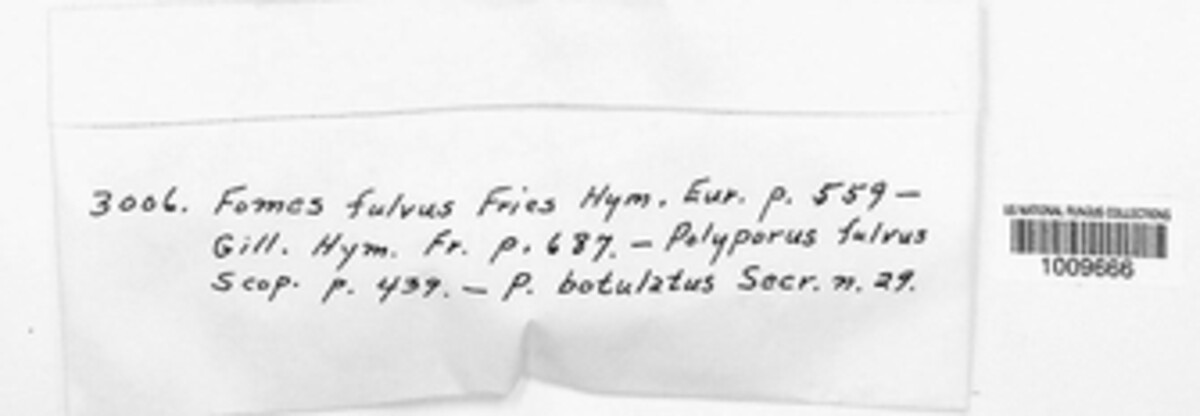 3006. Fomes fulvus Fries Hym. Eur. p. 559 —
Gill. Hym. Fr. p. 687. — Polyporus fulvus
Scop. p. 439. — P. botulatus Secr. n. 29.
US NATIONAL FUNGUS COLLECTIONS
1009666